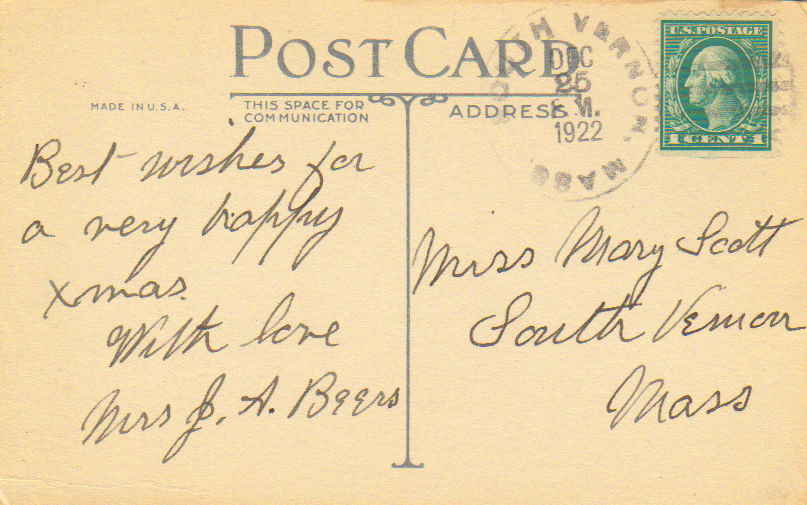 POST CARD
MADE IN U.S.A.
THIS SPACE FOR
COMMUNICATION
ADDRESS
SOUTH VERNON, MASS.
DEC
25
M.
1922
U.S. POSTAGE
1 CENT 1
Best wishes for
a very happy
xmas.
With love
Mrs J. A. Beers
Miss Mary Scott
South Vernon
Mass